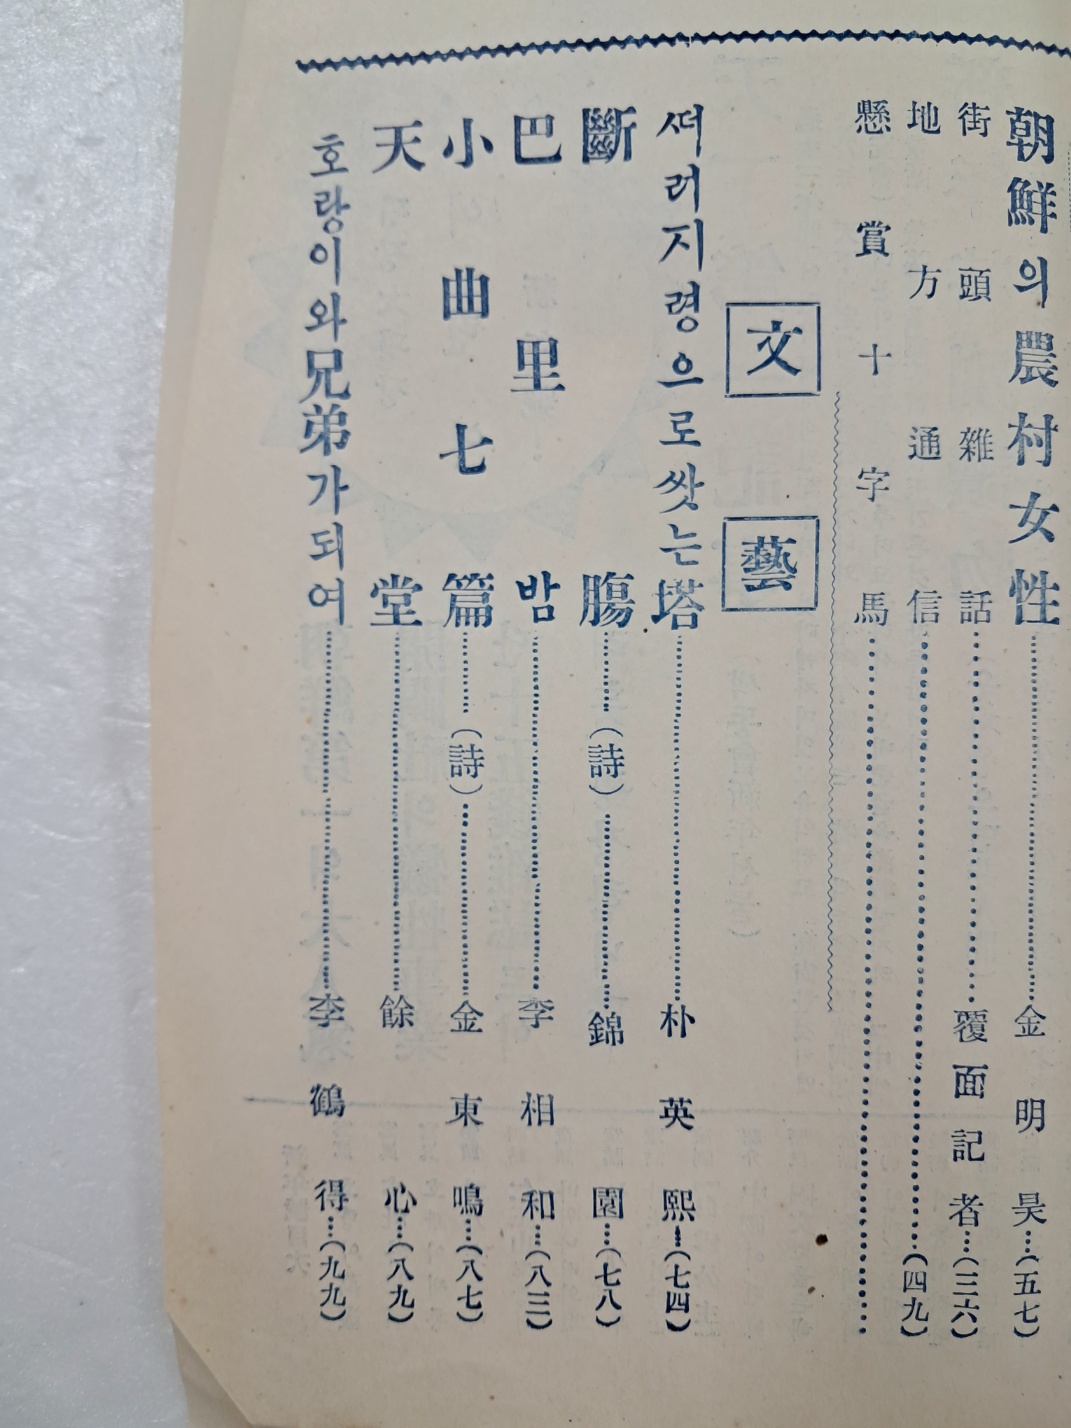 朝鮮의農村女性 金明昊 (五七)
街頭雜話 覆面記者 (三六)
地方通信 (四九)
懸賞十字馬
文藝
떠러지령으로쌋는塔 朴英熙 (七四)
斷膓 (詩) 錦園 (七八)
巴里밤 李相和 (八三)
小曲七篇 (詩) 金東鳴 (八七)
天堂 餘心 (八九)
호랑이와兄弟가되여 李鶴得 (九九)